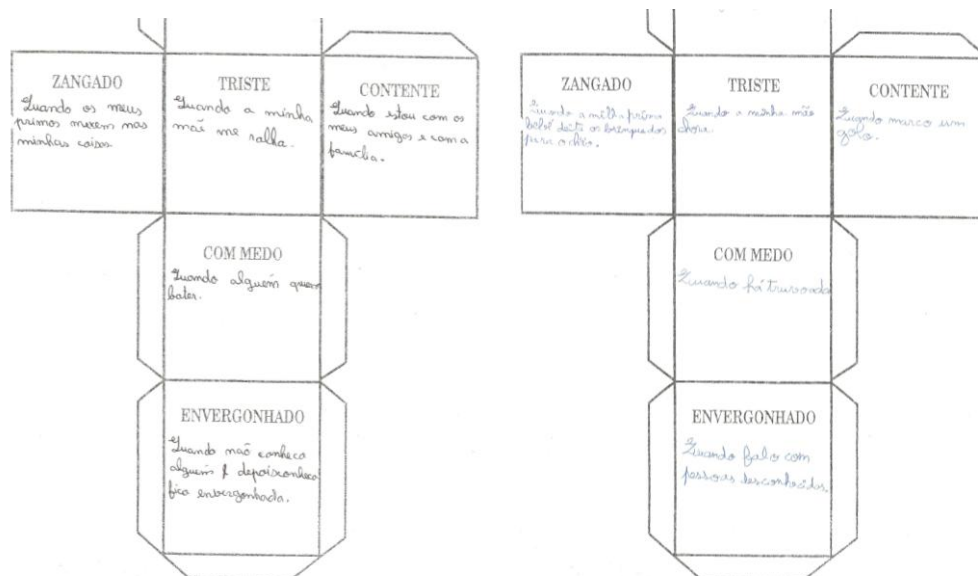 ZANGADO
Quando os meus
primos mexem nas
minhas coisas.
TRISTE
Quando a minha
mãe me ralha.
CONTENTE
Quando estou com os
meus amigos e com a
família.
COM MEDO
Quando alguém quer
bater.
ENVERGONHADO
Quando não conheco
alguém e depois conheco
fico envergonhada.
ZANGADO
Quando a minha prima
bebé deita os brinquedos
para o chão.
TRISTE
Quando a minha mãe
chora.
CONTENTE
Quando marco um
golo.
COM MEDO
Quando há truvoada
ENVERGONHADO
Quando falo com
pessoas desconhecidas.